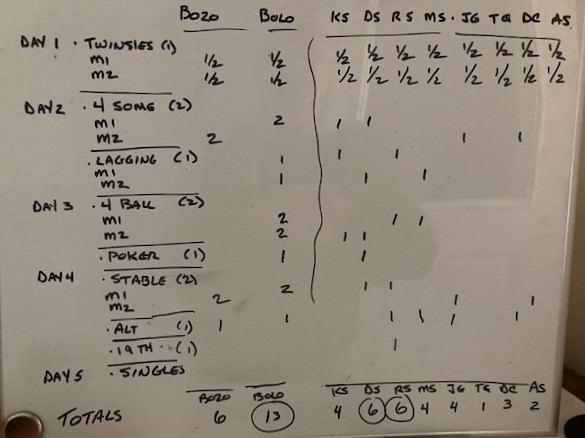 BOZO BOLO KS DS RS MS · JG TG DC AS
DAY 1 · TWINSIES (1)
M1 1/2 1/2 1/2 1/2 1/2 1/2 1/2 1/2 1/2 1/2
M2 1/2 1/2 1/2 1/2 1/2 1/2 1/2 1/2 1/2 1/2
DAY2 · 4 SOME (2)
M1 2 1 1
M2 2 1 1
· LAGGING (1) 1 1 1
M1
M2 1 1 1
DAY 3 · 4 BALL (2)
M1 2 1 1
M2 2 1 1
· POKER (1) 1 1
DAY4 · STABLE (2)
M1 2 1 1
M2 2 1 1
· ALT (1) 1 1 1 1 1 1
· 19TH · (1) 1
DAY 5 · SINGLES
BOZO BOLO KS DS RS MS JG TG DC AS
TOTALS 6 13 4 6 6 4 4 1 3 2